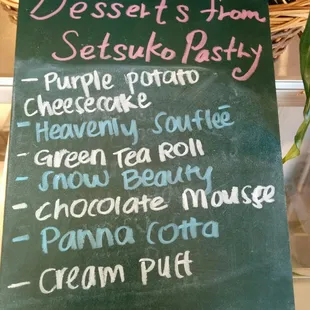 Desserts from
Setsuko Pastry
- Purple potato
cheesecake
- Heavenly Soufleé
- Green Tea Roll
- Snow Beauty
- Chocolate Mousse
- Panna Cotta
- Cream Puff